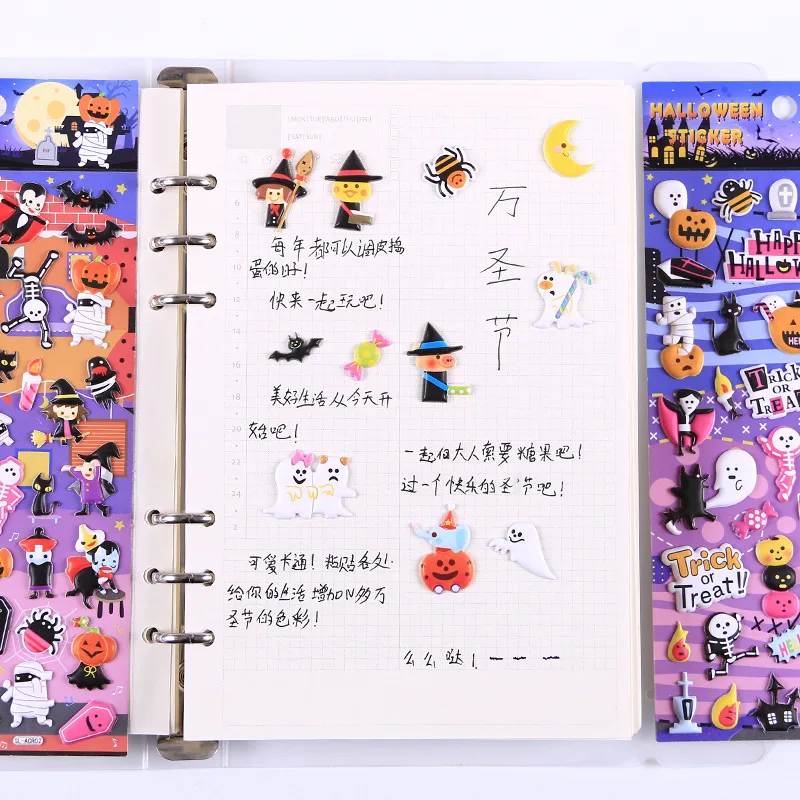 HALLOWEEN
STICKER
[MON][TUE][WED][THU][FRI]
[SAT][SUN]
6
8
10
12
14
16
18
20
22
24
2
万圣节
每年都可以调皮捣
蛋的时!
快来一起玩吧!
美好生活从今天开
始吧!
一起向大人索要糖果吧!
过一个快乐的圣节吧!
可爱卡通!粘贴各处
给你的生活增加N多万
圣节的色彩!
么么哒!
HAPPY
HALLOWEEN
TRICK
OR
TREAT
Trick
or
Treat!!
SL-AGR02